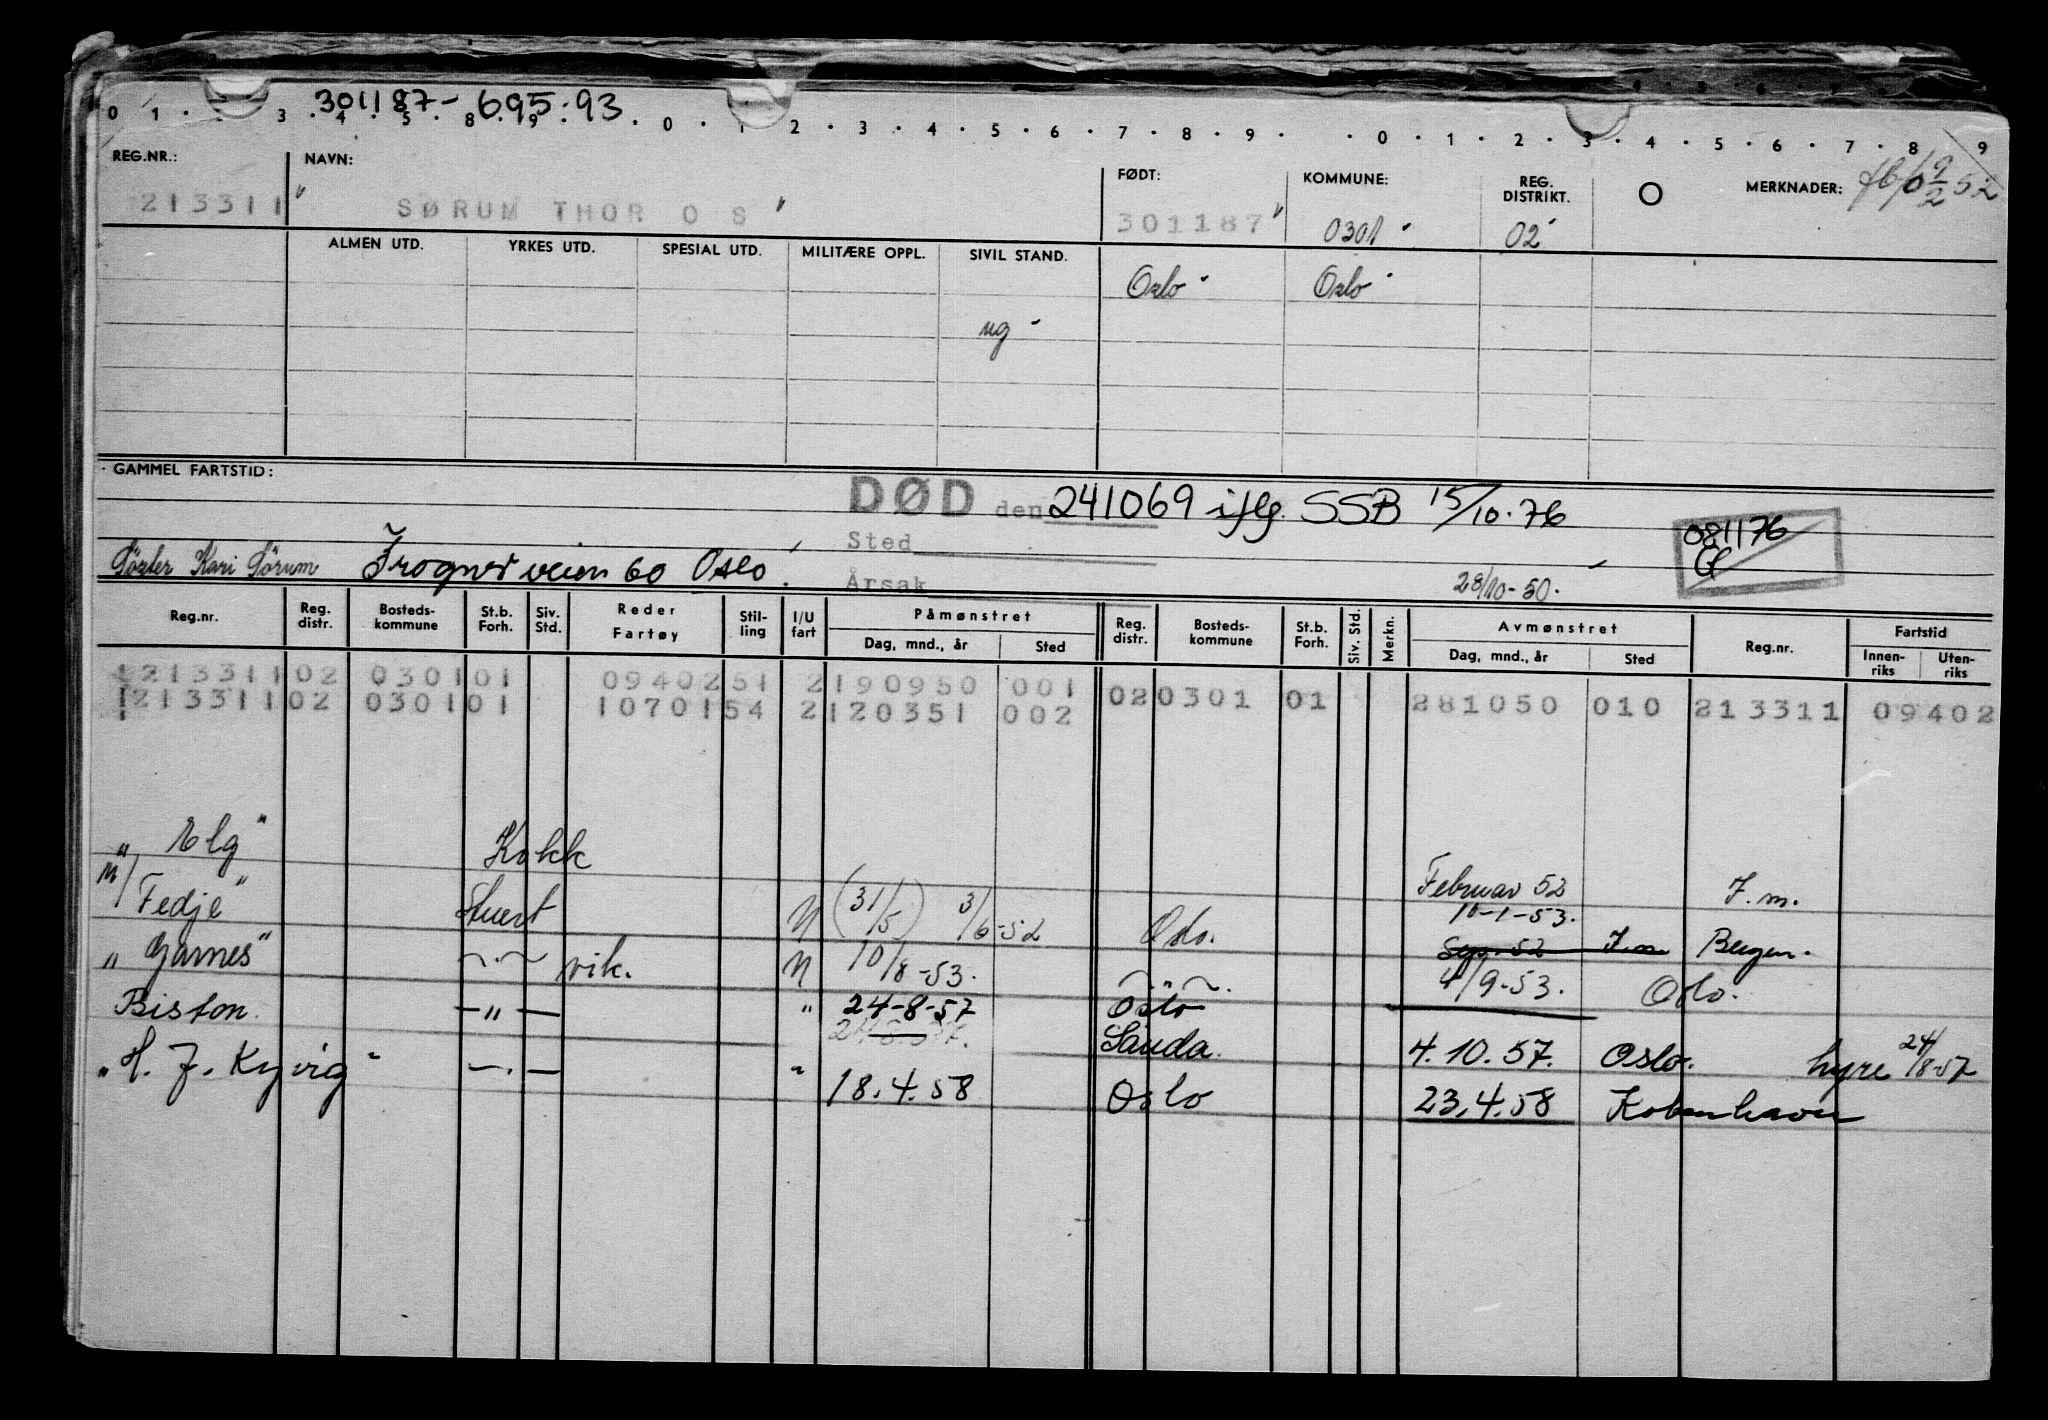 301187-69593
0 1 . . 3 . 4 . 5 . 8 . 9 . . 0 . 1 . 2 . 3 . 4 . 5 . 6 . 7 . 8 . 9 . . 0 . 1 . 2 . 3 . 4 . 5 . 6 . 7 . 8 . 9
REG.NR.: NAVN: FØDT: KOMMUNE: REG. DISTRIKT. O MERKNADER: 9/2 52
213311 " SØRUM THOR O S " 301187 " 0301 02
ALMEN UTD. YRKES UTD. SPESIAL UTD. MILITÆRE OPPL. SIVIL STAND.
Oslo Oslo
ug
GAMMEL FARTSTID:
DØD den 241069 iflg. SSB 15/10.76
Sted
081176
Søster Kari Sørum Frognerveien 60 Oslo.
Årsak
28/10-50.
Reg.nr. Reg. distr. Bosteds-kommune St.b. Forh. Siv. Std. Reder Fartøy Stil-ling I/U fart Påmønstret Dag, mnd., år Sted Reg. distr. Bosteds-kommune St.b. Forh. Siv. Std. Merkn. Avmønstret Dag, mnd., år Sted Reg.nr. Fartstid Innen-riks Uten-riks
213311 02 0301 01 0940251 2 190950 001 02 0301 01 281050 010 213311 09402
213311 02 0301 01 1070154 2 120351 002
" Elg " Kokk Februar 52 F.m.
M/ Fedje " Stuert N (31/5) 3/6-52 Oslo. 10-1-53. Sep. 52 Bergen.
" Garnes " -.- vik. N 10/8-53. -"-. 4/9-53. Oslo.
Biston. -"- " 24-8-57 Oslo
Sauda. 4.10.57. Oslo. hyre 24/8-57
" H. J. Kyvig " -.- " 18.4.58 Oslo 23.4.58 Kobenhavn